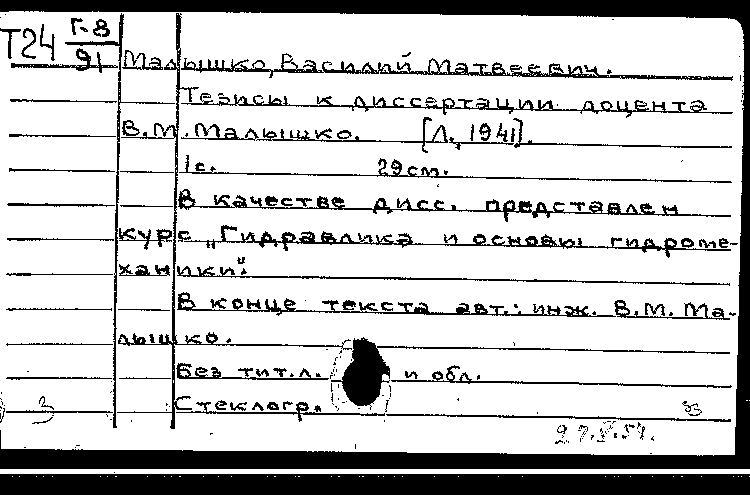 Т24 Г-8
91
Малышко, Василий Матвеевич.
Тезисы к диссертации доцента
В.М. Малышко. [Л., 1941].
1с. 29см.
В качестве дисс. представлен
курс „Гидравлика и основы гидроме-
ханики".
В конце текста авт.: инж. В.М. Ма-
лышко.
Без тит.л. и обл.
Стеклогр.
3